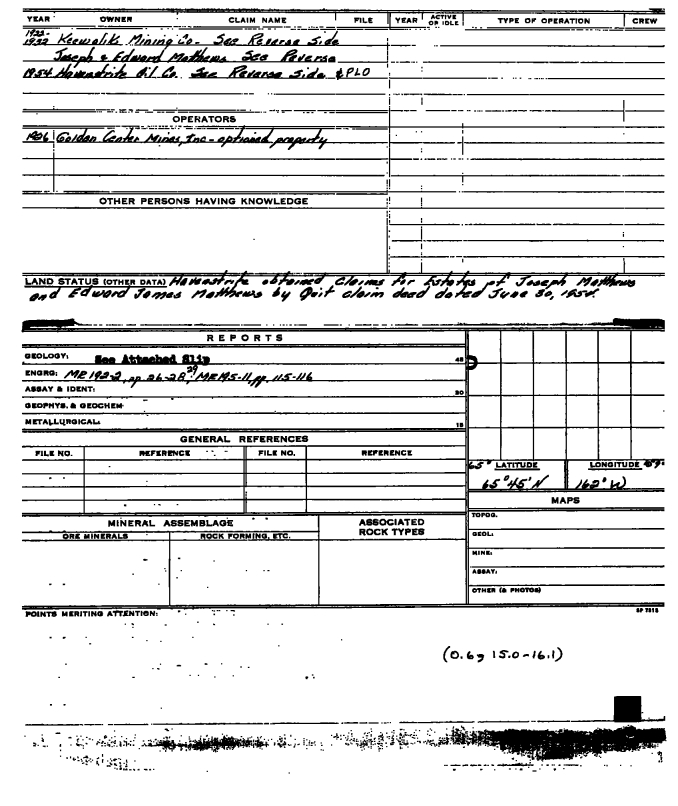 YEAR OWNER CLAIM NAME FILE YEAR ACTIVE OR IDLE TYPE OF OPERATION CREW
1922-
1932 Keewalik Mining Co. See Reverse Side
Joseph & Edward Matthews See Reverse
1954 Homestrite Oil Co. See Reverse Side & PLO
OPERATORS
1936 Golden Center Mines, Inc - optioned property
OTHER PERSONS HAVING KNOWLEDGE
LAND STATUS (OTHER DATA) Homestrite obtained Claims for Estates of Joseph Matthews
and Edward James Matthews by Quit claim deed dated June 30, 1954.
REPORTS
GEOLOGY: See Attached Slip
45
ENGRG: MR 192-2, pp 26-28, 29; MR 195-11, pp. 115-116
ASSAY & IDENT:
30
GEOPHYS. & GEOCHEM
METALLURGICAL:
15
GENERAL REFERENCES
FILE NO. REFERENCE FILE NO. REFERENCE
65° LATITUDE LONGITUDE
65°45' N 162° W
MAPS
MINERAL ASSEMBLAGE ASSOCIATED ROCK TYPES
ORE MINERALS ROCK FORMING, ETC.
TOPOG.
GEOL:
MINE:
ASSAY:
OTHER (& PHOTOS)
POINTS MERITING ATTENTION:
SP 7815
(0.6 15.0-16.1)